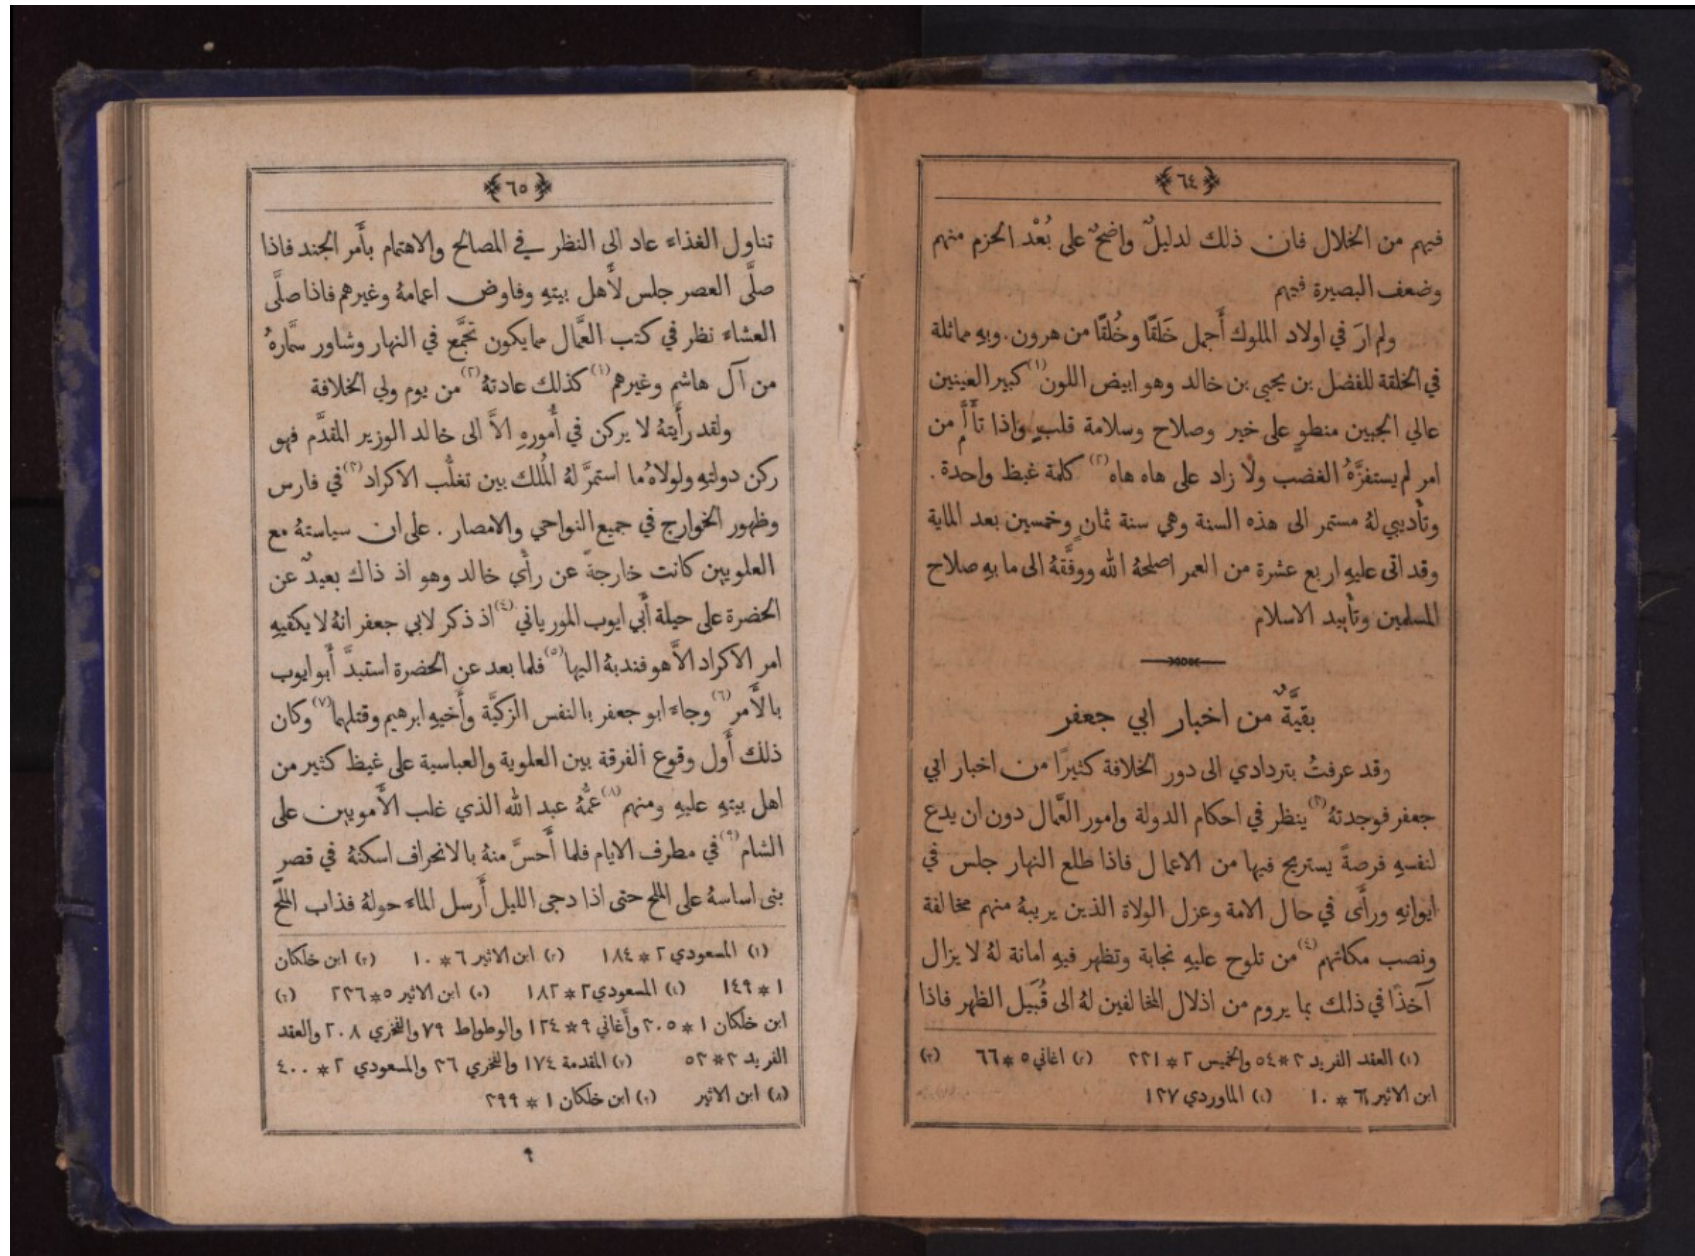 ﴿٦٤﴾
فيهم من الخلال فان ذلك لدليلٌ واضحٌ على بُعْد الحزم منهم
وضعف البصيرة فيهم
ولم ارَ في اولاد الملوك أَجمل خَلقًا وخُلقًا من هرون. وبهِ مماثلة
في الخلقة للفضل بن يحيى بن خالد وهو ابيض اللون(١) كبير العينين
عالي الجبين منطوٍ على خير وصلاح وسلامة قلبٍ واذا تأَلَّم من
امر لم يستفزَّهُ الغضب ولا زاد على هاه هاه(٢) كلمة غيظ واحدة.
وتأديبي لهُ مستمر الى هذه السنة وهي سنة ثمانٍ وخمسين بعد الماية
وقد اتى عليهِ اربع عشرة من العمر اصلحهُ الله ووفَّقهُ الى ما بهِ صلاح
المسلمين وتأييد الاسلام
بقيَّةٌ من اخبار ابي جعفر
وقد عرفتُ بتردادي الى دور الخلافة كثيرًا من اخبار ابي
جعفر فوجدتهُ(٣) ينظر في احكام الدولة وامور العمَّال دون ان يدع
لنفسهِ فرصةً يستريح فيها من الاعمال فاذا طلع النهار جلس في
ايوانهِ ورأَى في حال الامة وعزل الولاة الذين يريبهُ منهم مخالفة
ونصب مكانهم(٤) من تلوح عليهِ نجابة وتظهر فيهِ امانة لهُ لا يزال
آخذًا في ذلك بما يروم من اذلال المخالفين لهُ الى قُبَيل الظهر فاذا
(١) العقد الفريد ٣*٥٤ والخميس ٢*٣٣١ (٢) اغاني ٥*٦٦ (٣)
ابن الاثير ٦*١٠ (٤) الماوردي ١٣٧
﴿٦٥﴾
تناول الغذاء عاد الى النظر في المصالح والاهتمام بأَمر الجند فاذا
صلَّى العصر جلس لأَهل بيتهِ وفاوض اعمامهُ وغيرهم فاذا صلَّى
العشاء نظر في كتب العمَّال مما يكون تجمَّع في النهار وشاور سمَّارهُ
من آل هاشم وغيرهم(١) كذلك عادتهُ(٢) من يوم ولي الخلافة
ولقد رأَيتهُ لا يركن في أُمورهِ الاَّ الى خالد الوزير المقدَّم فهو
ركن دولتهِ ولولاهُ ما استمرَّ لهُ المُلك بين تغلُّب الاكراد(٣) في فارس
وظهور الخوارج في جميع النواحي والامصار. على ان سياستهُ مع
العلويين كانت خارجةً عن رأْي خالد وهو اذ ذاك بعيدٌ عن
الحضرة على حيلة أَبي ايوب المورياني(٤) اذ ذكر لابي جعفر انهُ لا يكفيهِ
امر الاكراد الاَّ هو فندبهُ اليها(٥) فلما بعد عن الحضرة استبدَّ أَبو ايوب
بالأَمر(٦) وجاء ابو جعفر بالنفس الزكيَّة وأَخيهِ ابرهيم وقتلهما(٧) وكان
ذلك أَول وقوع الفرقة بين العلوية والعباسية على غيظ كثير من
اهل بيتهِ عليهِ ومنهم(٨) عمُّهُ عبد الله الذي غلب الأَمويين على
الشام(٩) في مطرف الايام فلما أَحسَّ منهُ بالانحراف اسكنهُ في قصر
بنى اساسهُ على الملح حتى اذا دجى الليل أَرسل الماء حولهُ فذاب الملح
(١) المسعودي ٢*١٨٤ (٢) ابن الاثير ٦*١٠ (٣) ابن خلكان
١*١٤٩ (٤) المسعودي ٢*١٨٢ (٥) ابن الاثير ٥*٢٣٦ (٦)
ابن خلكان ١*٢٠٥ وأَغاني ٩*١٢٤ والوطواط ٧٩ والفخري ٢٠٨ والعقد
الفريد ٣*٥٣ (٧) المقدمة ١٧٤ والفخري ٣٦ والمسعودي ٢*٤٠٠
(٨) ابن الاثير (٩) ابن خلكان ١*٣٩٩
٩